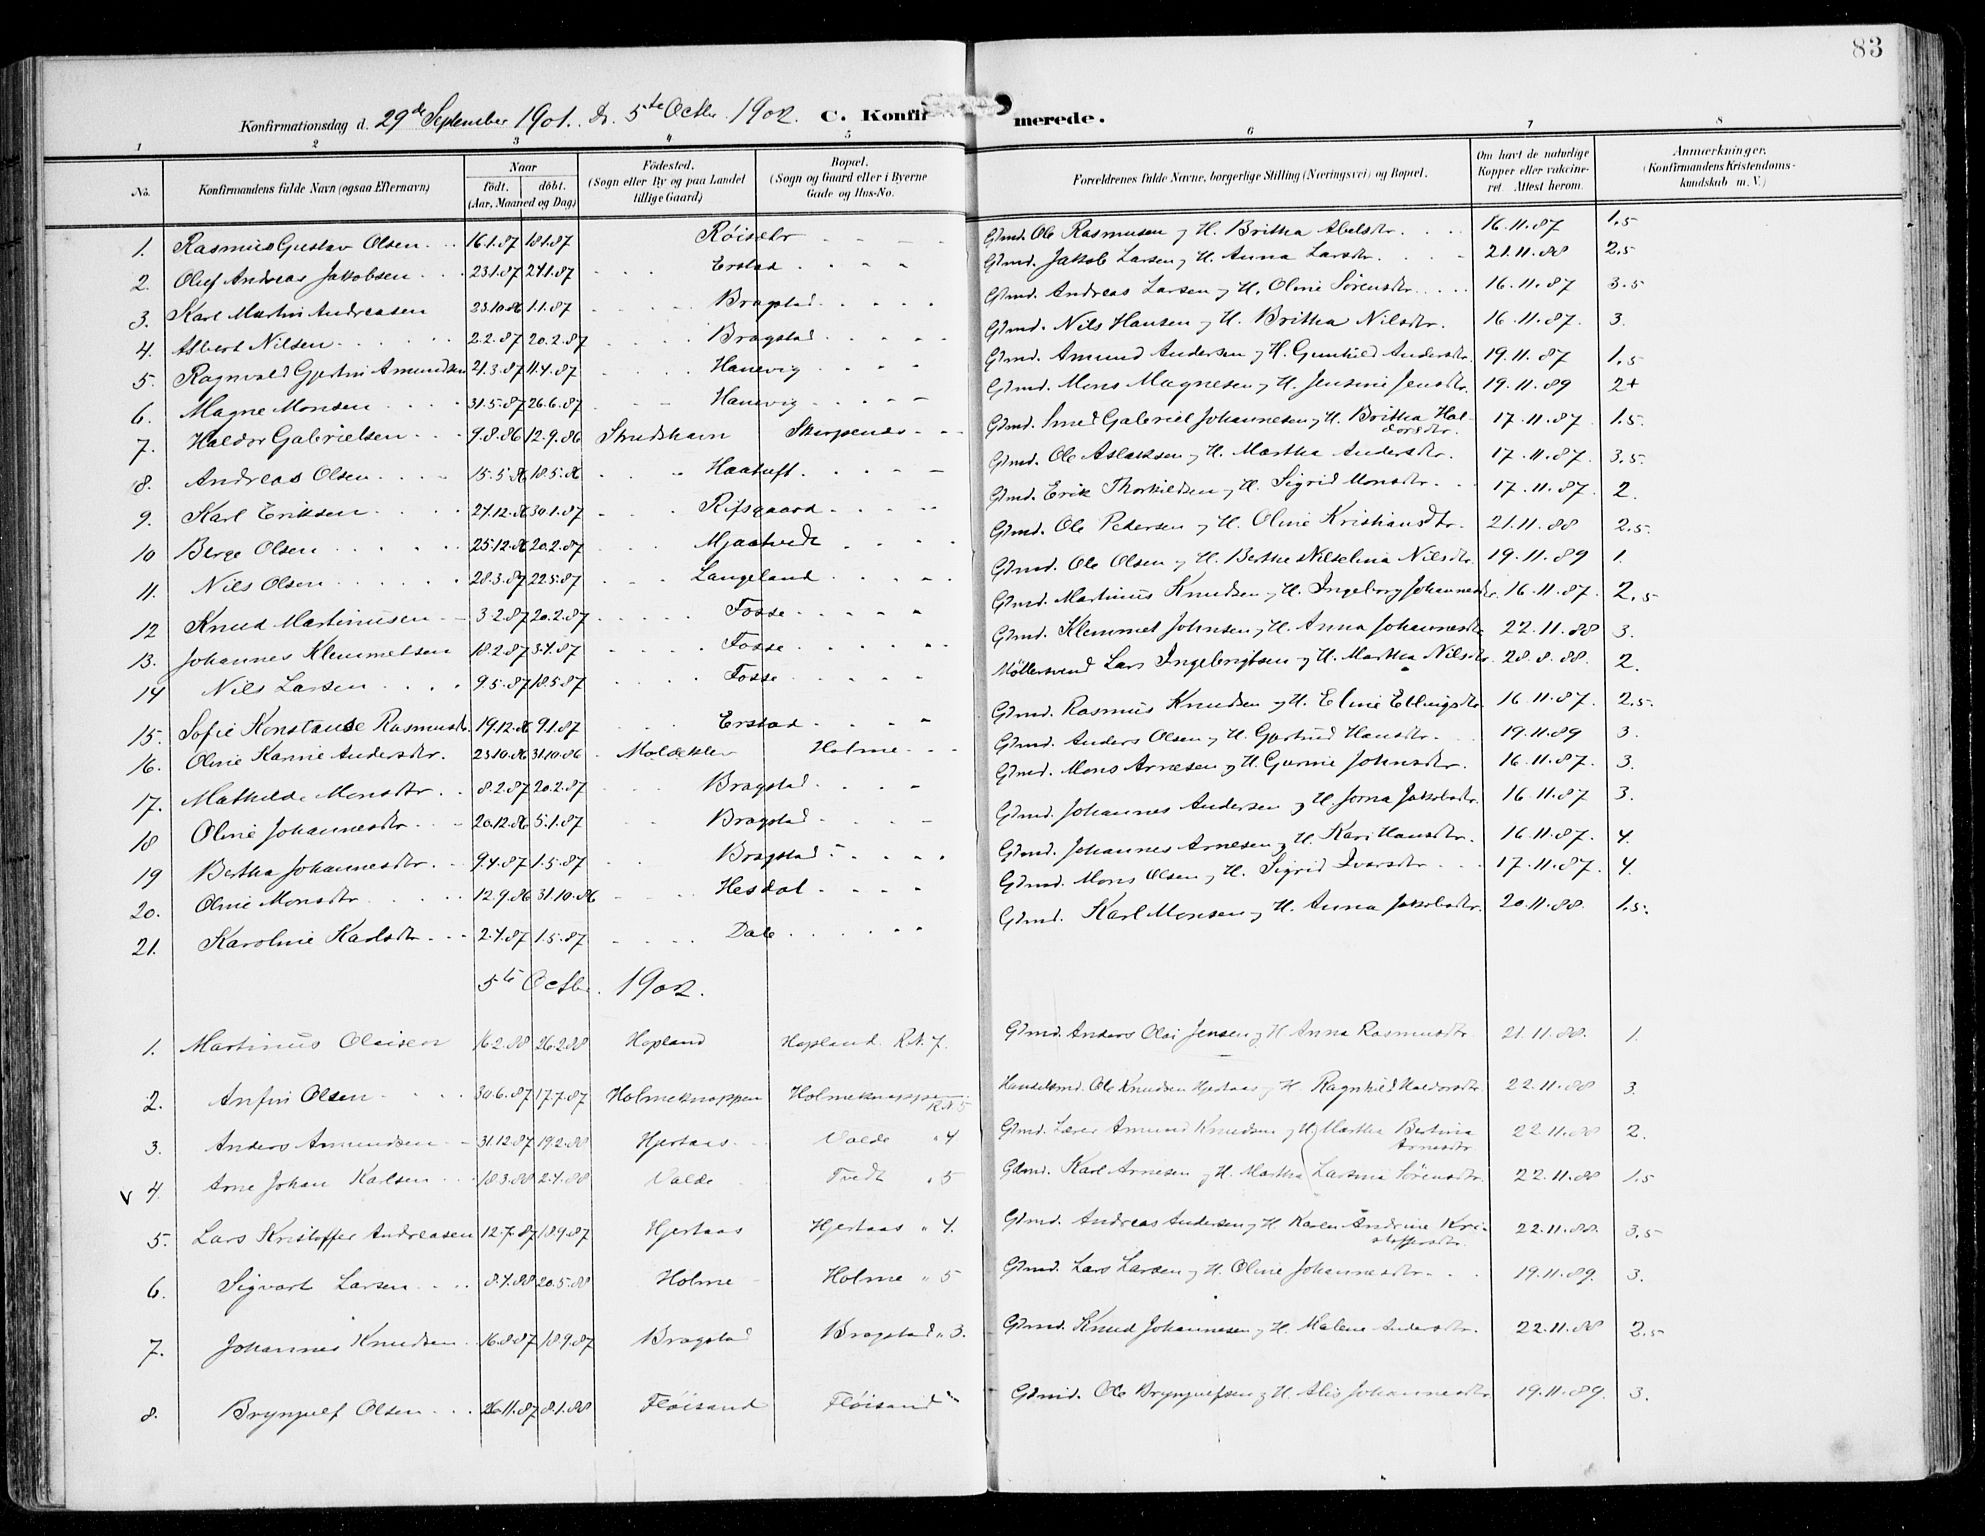 83
Konfirmationsdag d. 29de September 1901. D. 5te Octbr. 1902. C. Konfirmerede.
1 2 3 4 5 6 7 8
No. Konfirmandens fulde Navn (ogsaa Efternavn) Naar født. døbt. (Aar, Maaned og Dag) Fødested. (Sogn eller By og paa Landet tillige Gaard) Bopæl. (Sogn og Gaard eller i Byerne Gade og Hus-No. Forældrenes fulde Navne, borgerlige Stilling (Næringsvei) og Bopæl. Om havt de naturlige Kopper eller vakcineret. Attest herom. Anmærkninger. (Konfirmandens Kristendomskundskab m. V.)
1. Rasmus Gustav Olsen 16.1.87 18.1.87 Røisetr Gdmd. Ole Rasmusen og H. Britha Abelsdtr. 16.11.87 1,5
2. Oluf Andreas Jakobsen 23.1.87 27.1.87 Erstad Gdmd. Jakob Larsen og H. Anna Larsdtr. 21.11.88 2,5
3. Karl Martin Andreasen 23.10.86 1.1.87 Bragstad Gdmd. Andreas Larsen og H. Oline Sørensdtr. 16.11.87 3.5
4. Albert Nilsen 2.2.87 20.2.87 Bragstad Gdmd. Nils Hansen og H. Britha Nilsdtr. 16.11.87. 3.
5. Ragnvald Gjertin Amundsen 21.3.87 11.4.87 Hanevig Gdmd. Amund Andersen og H. Gunhild Andersdtr. 19.11.87 1,5
6. Magne Monsen 31.5.87 26.6.87 Hanevig Gdmd. Mons Magnesen og H. Jensine Jensdtr. 19.11.89 2+
7. Haldor Gabrielsen 9.8.86 12.9.86 Strudshavn Skarpenes Gdmd. Smed Gabriel Johannesen og H. Britha Haldorsdtr. 17.11.87. 1.5.
8. Andreas Olsen 15.5.86 18.5.86 Haatuft Gdmd. Ole Aslaksen og H. Martha Andersdtr. 17.11.87. 3.5.
9. Karl Eriksen 27.12.86 30.1.87 Rifsgaard Gdmd. Erik Thorkildsen og H. Sigrid Monsdtr. 17.11.87. 2.
10 Berge Olsen 25.12.86 20.2.87 Mjaatvedt Gdmd. Ole Pedersen og H. Oline Kristiansdtr. 21.11.88 2.5.
11. Nils Olsen 28.3.87 22.5.87 Langeland Gdmd. Ole Olsen og H. Berthe Nilselina Nilsdtr. 19.11.89 1.
12 Knud Martinusen 3.2.87 20.2.87 Fosse Gdmd. Martinus Knudsen og H. Ingeborg Johannesdtr. 16.11.87. 2,5
13. Johannes Klemmetsen 18.2.87 3.4.87 Fosse Gdmd. Klemmet Johnsen og H. Anna Johannesdtr. 22.11.88 3.
14 Nils Larsen 9.5.87 18.5.87 Fosse Møllersvend Lars Ingebrigtsen og H. Martha Nilsdtr. 28.8.88. 2.
15. Sofie Konstanse Rasmusdtr. 19.12.86 9.1.87 Erstad Gdmd. Rasmus Knudsen og H. Eline Ellingsdtr. 16.11.87. 2.5.
16. Oline Karine Andersdtr. 23.10.86 31.10.86 Moldeklev Holme Gdmd. Anders Olsen og H. Gjertrud Hansdtr. 19.11.89 3.
17. Mathilde Monsdtr. 8.2.87 20.2.87 Bragstad Gdmd. Mons Arnesen og H. Gurine Johnsdtr. 16.11.87. 3.
18 Oline Johannesdtr. 20.12.86 5.1.87 Bragstad Gdmd. Johannes Andersen og H. Jorna Jakobsdtr. 16.11.87 3.
19 Bertha Johannesdtr. 9.4.87 1.5.87 Bragstad Gdmd. Johannes Arnesen og H. Kari Hansdtr. 16.11.87. 4.
20. Oline Monsdtr 12.9.86 31.10.86 Hesdal Gdmd. Mons Olsen og H. Sigrid Ivarsdtr. 17.11.87. 4.
21. Karoline Karlsdtr. 2.4.87 1.5.87 Dale Gdmd. Karl Monsen og H. Anna Jakobsdtr. 20.11.88. 1,5.
5te Octbr. 1902.
1. Martinus Olaisen 16.2.88 26.2.88 Hopland Hopland R.N. 7. Gdmd. Anders Olai Jensen og H. Anna Rasmusdtr 21.11.88. 1.
2. Anfin Olsen 30.6.87 17.7.87 Holmeknappen Holmeknappen R.N. 5 Handelsmd. Ole Knudsen Hjertaas og H. Ragnhild Haldorsdtr. 22.11.88 3.
3. Anders Amundsen 31.12.87 19.2.88 Hjertaas Valde " 4 Gdmd. Lærer Amund Knudsen og H. Martha Bertina Arnesdtr. 22.11.88 2.
v 4. Arne Johan Karlsen 18.3.88 2.4.88 Valde Tvedt " 5 Gdmd. Karl Arnesen og H. Martha Larsina Sørensdtr. 22.11.88 1.5
5. Lars Kristoffer Andreasen 12.7.87 18.9.87 Hjertaas Hjertaas " 4. Gdmd. Andreas Andersen og H. Karen Andrine Kristoffersdtr. 22.11.88. 3,5
6. Sigvart Larsen 8.4.88 20.5.88 Holme Holme " 5 Gdmd. Lars Larsen og H. Oline Johannesdtr. 19.11.89. 3.
7. Johannes Knudsen 16.8.87 18.9.87 Bragstad Bragstad " 3. Gdmd. Knud Johannesen og H. Malene Andersdtr. 22.11.88 2,5
8. Brynjulf Olsen 26.11.87 8.1.88 Fløisand Fløisand " Gdmd. Ole Brynjulfsen og H. Alis Johannesdtr 19.11.89. 3.